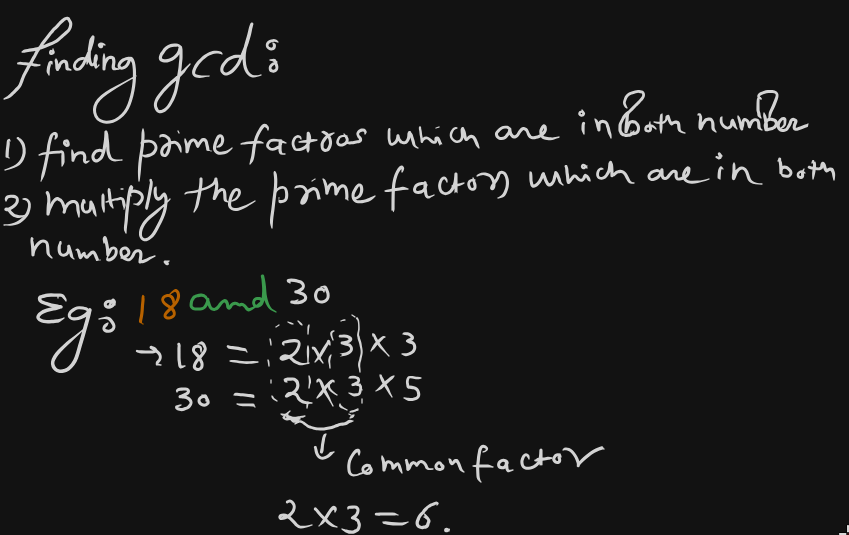 finding gcd:
1) find prime factros which are in both number
2) multiply the prime factors which are in both
number.
Eg: 18 and 30
→ 18 = 2 × 3 × 3
30 = 2 × 3 × 5
Common factor
2 × 3 = 6.